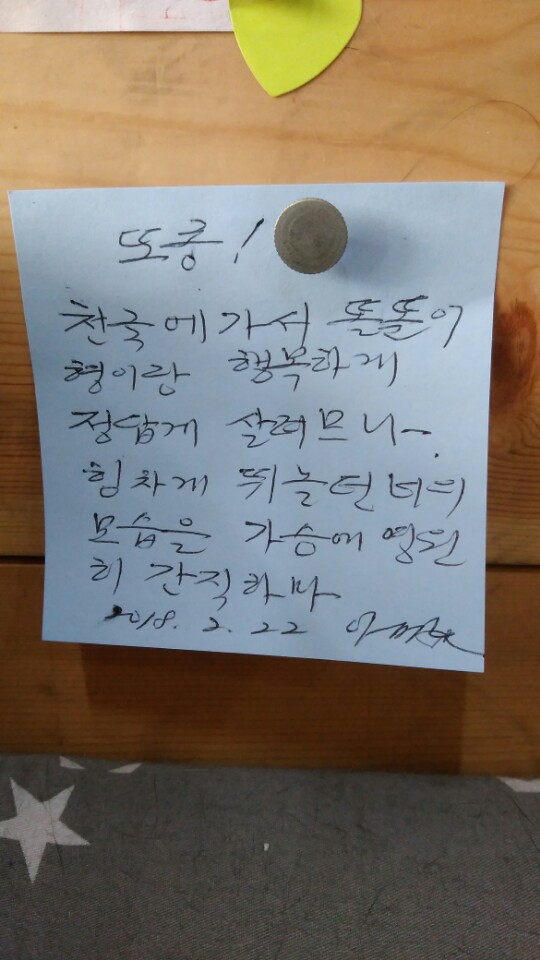 또롱!
천국에 가서 똘똘이
형이랑 행복하게
정답게 살려므나~.
힘차게 뛰놀던 너의
모습을 가슴에 영원
히 간직하마
2018. 2. 22